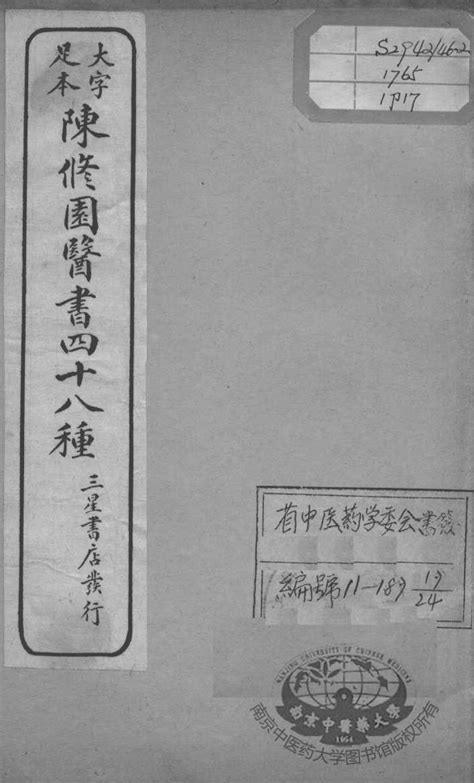 大字
足本
陳修園醫書四十八種
三星書店發行
S2942/46-2
1765
1P17
省中医药学委会書發
編號11-189 19/24
NANJING UNIVERSITY OF CHINESE MEDICINE
南京中醫藥大學
1954
南京中医药大学图书馆版权所有